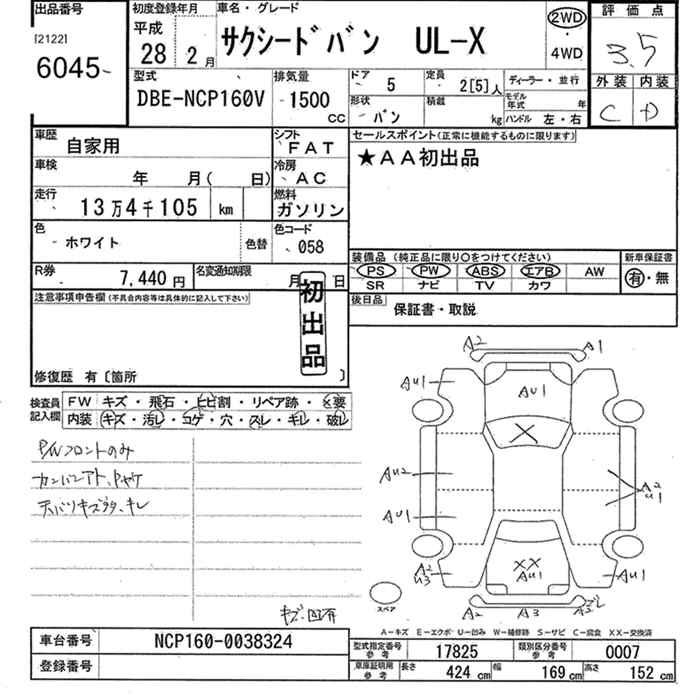 出品番号 初度登録年月 車名・グレード 2WD 評価点
[2122] 平成 サクシードバン UL-X ・ 3.5
6045 28 年 2 月 4WD
型式 排気量 ドア 5 定員 2[5]人 ディーラー・並行 外装 内装
DBE-NCP160V 1500 cc 形状 バン 積載 kg モデル年式 年 ハンドル 左・右 C D
車歴 自家用 シフト FAT セールスポイント(正常に機能するものに限ります)
車検 年 月( 日) 冷房 AC ★AA初出品
走行 13万4千105 km 燃料 ガソリン
色 ホワイト 色替 色コード 058
装備品 (純正品に限り○をつけてください) 新車保証書
R券 7,440 円 名変通知期限 月 日 PS PW ABS エアB AW 有・無
SR ナビ TV カワ
注意事項申告欄(不具合内容等は具体的に記入して下さい) 初出品 後日品 保証書・取説
修復歴 有〔箇所 〕
検査員記入欄 FW キズ・飛石・ヒビ割・リペア跡・×要
内装 キズ・汚レ・コゲ・穴・スレ・キレ・破レ
P/Wフロントのみ
カンバンアト、ヤケ
天バリキズ、キレ
キズ・凹有
A2 A1
AU1 AU1
X
AU2 A2 U1
AU1
A2 U3 XX AU1 AU1
スペア A2 A3
A-キズ E-エクボ U-凹み W-補修跡 S-サビ C-腐食 XX-交換済
車台番号 NCP160-0038324 型式指定番号 参考 17825 類別区分番号 参考 0007
登録番号 車庫証明用 参考 長さ 424 cm 幅 169 cm 高さ 152 cm